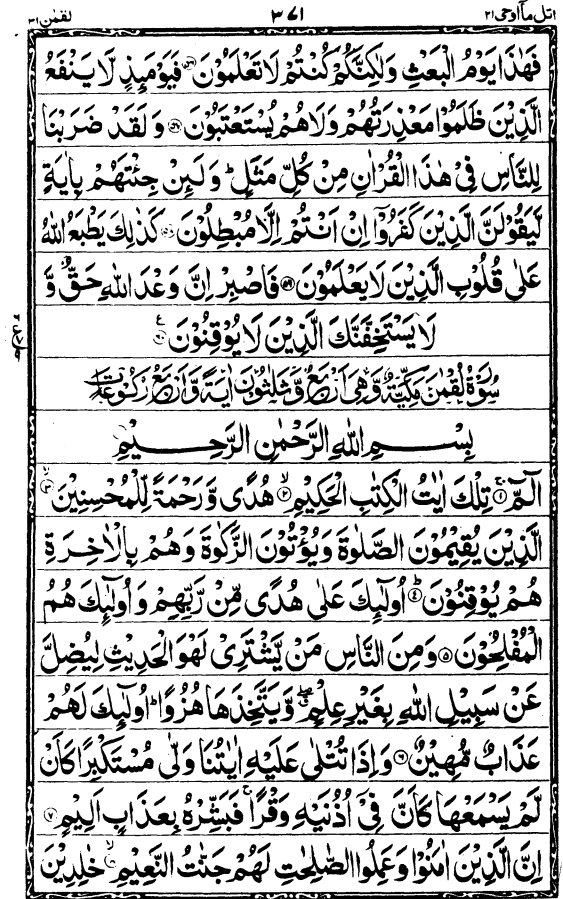 اتل مآ اوحی ٢١ ٣٧١ لقمٰن ٣١
فَهٰذَا يَوْمُ الْبَعْثِ وَلٰكِنَّكُمْ كُنْتُمْ لَا تَعْلَمُوْنَ ﴿٥٦﴾ فَيَوْمَئِذٍ لَّا يَنْفَعُ
الَّذِيْنَ ظَلَمُوْا مَعْذِرَتُهُمْ وَلَا هُمْ يُسْتَعْتَبُوْنَ ﴿٥٧﴾ وَلَقَدْ ضَرَبْنَا
لِلنَّاسِ فِيْ هٰذَا الْقُرْاٰنِ مِنْ كُلِّ مَثَلٍ ؕ وَلَئِنْ جِئْتَهُمْ بِاٰيَةٍ
لَّيَقُوْلَنَّ الَّذِيْنَ كَفَرُوْٓا اِنْ اَنْتُمْ اِلَّا مُبْطِلُوْنَ ﴿٥٨﴾ كَذٰلِكَ يَطْبَعُ اللّٰهُ
عَلٰى قُلُوْبِ الَّذِيْنَ لَا يَعْلَمُوْنَ ﴿٥٩﴾ فَاصْبِرْ اِنَّ وَعْدَ اللّٰهِ حَقٌّ وَّ
لَا يَسْتَخِفَّنَّكَ الَّذِيْنَ لَا يُوْقِنُوْنَ ﴿٦٠﴾ ع
سُوْرَةُ لُقْمٰنَ مَكِّيَّةٌ وَّهِيَ اَرْبَعٌ وَّثَلٰثُوْنَ اٰيَةً وَّاَرْبَعُ رُكُوْعَاتٍ
بِسْمِ اللّٰهِ الرَّحْمٰنِ الرَّحِيْمِ
الٓمّٓ ﴿١﴾ تِلْكَ اٰيٰتُ الْكِتٰبِ الْحَكِيْمِ ﴿٢﴾ هُدًى وَّرَحْمَةً لِّلْمُحْسِنِيْنَ ﴿٣﴾
الَّذِيْنَ يُقِيْمُوْنَ الصَّلٰوةَ وَيُؤْتُوْنَ الزَّكٰوةَ وَهُمْ بِالْاٰخِرَةِ
هُمْ يُوْقِنُوْنَ ﴿٤﴾ اُولٰٓئِكَ عَلٰى هُدًى مِّنْ رَّبِّهِمْ وَاُولٰٓئِكَ هُمُ
الْمُفْلِحُوْنَ ﴿٥﴾ وَمِنَ النَّاسِ مَنْ يَّشْتَرِيْ لَهْوَ الْحَدِيْثِ لِيُضِلَّ
عَنْ سَبِيْلِ اللّٰهِ بِغَيْرِ عِلْمٍ وَّيَتَّخِذَهَا هُزُوًا ؕ اُولٰٓئِكَ لَهُمْ
عَذَابٌ مُّهِيْنٌ ﴿٦﴾ وَاِذَا تُتْلٰى عَلَيْهِ اٰيٰتُنَا وَلّٰى مُسْتَكْبِرًا كَاَنْ
لَّمْ يَسْمَعْهَا كَاَنَّ فِيْٓ اُذُنَيْهِ وَقْرًا ۚ فَبَشِّرْهُ بِعَذَابٍ اَلِيْمٍ ﴿٧﴾
اِنَّ الَّذِيْنَ اٰمَنُوْا وَعَمِلُوا الصّٰلِحٰتِ لَهُمْ جَنّٰتُ النَّعِيْمِ ﴿٨﴾ خٰلِدِيْنَ